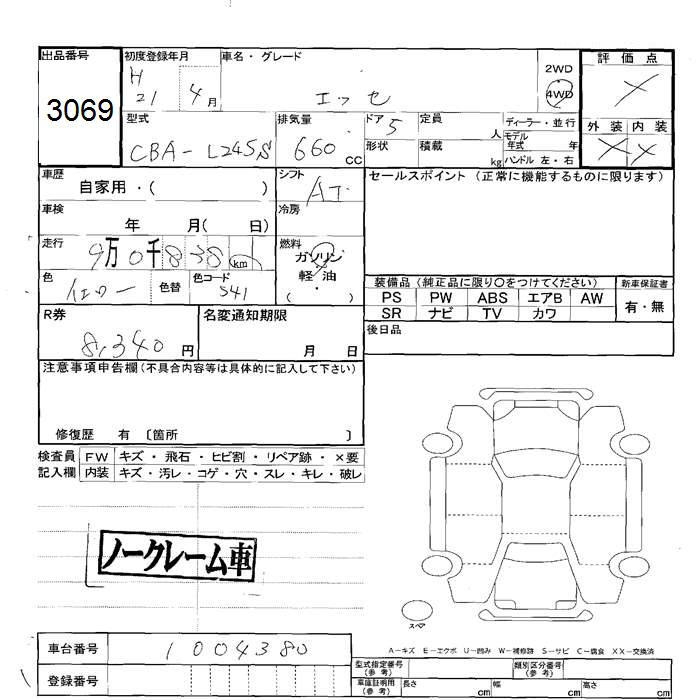 出品番号
3069
初度登録年月
H
21 4月
車名・グレード
エッセ
2WD
4WD
評価点
外装 内装
型式
CBA-L245S
排気量
660 cc
ドア 5
形状
定員 人
積載 kg
ディーラー・並行
モデル年式 年
ハンドル 左・右
車歴
自家用・( )
シフト
AT
セールスポイント (正常に機能するものに限ります)
車検
年 月( 日)
冷房
走行
9万0千838km
燃料
ガソリン
軽・油
( ・ )
色
イエロー
色替
色コード
S41
装備品 (純正品に限り○をつけてください)
新車保証書
PS PW ABS エアB AW
SR ナビ TV カワ
有・無
R券
8,340円
名変通知期限
月 日
後日品
注意事項申告欄(不具合内容等は具体的に記入して下さい)
修復歴 有 〔箇所 〕
検査員 FW キズ・飛石・ヒビ割・リペア跡・×要
記入欄 内装 キズ・汚レ・コゲ・穴・スレ・キレ・破レ
ノークレーム車
スペア
A-キズ E-エクボ U-凹み W-補修跡 S-サビ C-腐食 XX-交換済
車台番号
1004380
登録番号
型式指定番号
(参考)
類別区分番号
(参考)
車庫証明用
(参考)
長さ cm
幅 cm
高さ cm